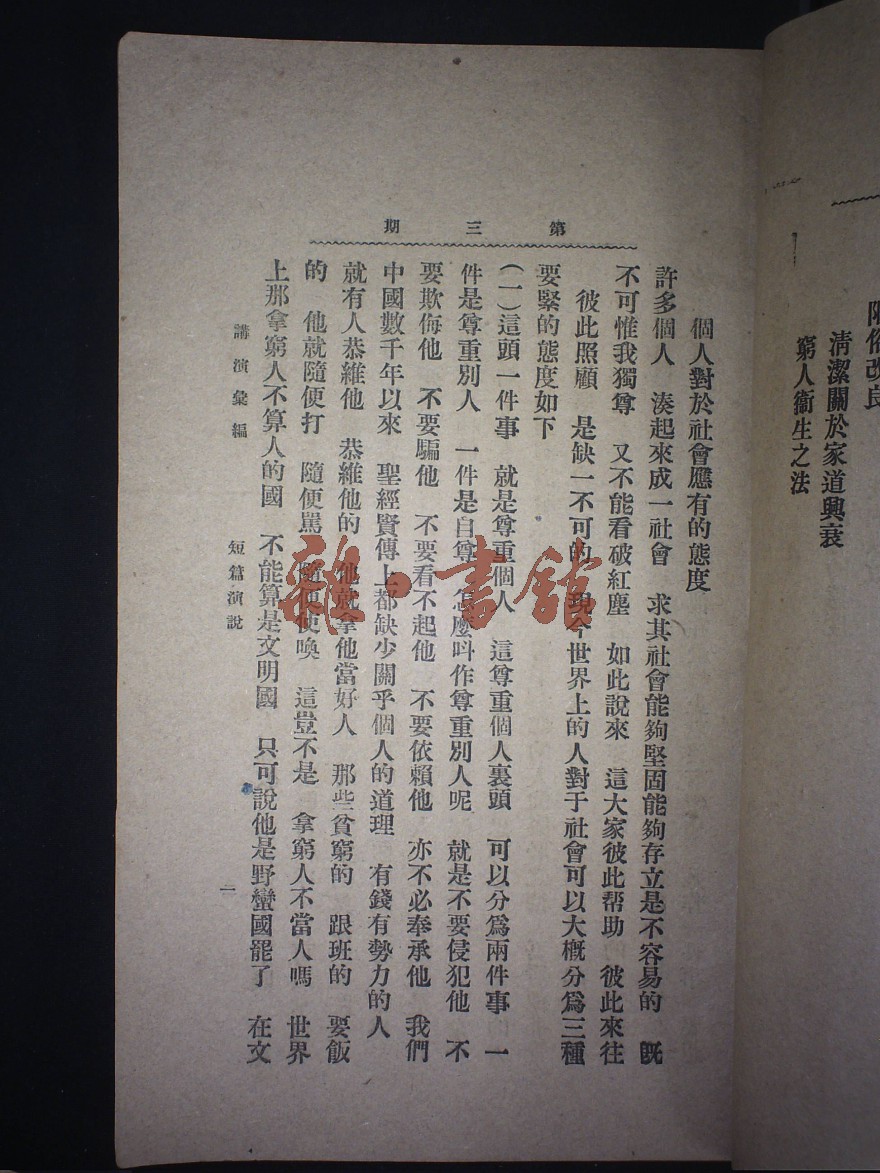 陋俗改良
清潔關於家道興衰
窮人衞生之法
第三期
個人對於社會應有的態度
許多個人　湊起來成一社會　求其社會能夠堅固能夠存立是不容易的　旣
不可惟我獨尊　又不能看破紅塵　如此說來　這大家彼此帮助　彼此來往
彼此照顧　是缺一不可的　現今世界上的人對于社會可以大槪分爲三種
要緊的態度如下
(一)這頭一件事　就是尊重個人　這尊重個人裏頭　可以分爲兩件事　一
件是尊重別人　一件是自尊　怎麼呌作尊重別人呢　就是不要侵犯他　不
要欺侮他　不要騙他　不要看不起他　不要依賴他　亦不必奉承他　我們
中國數千年以來　聖經賢傳上都缺少關乎個人的道理　有錢有勢力的人
就有人恭維他　恭維他的　他就拿他當好人　那些貧窮的　跟班的　要飯
的　他就隨便打　隨便罵　隨便使喚　這豈不是　拿窮人不當人嗎　世界
上那拿窮人不算人的國　不能算是文明國　只可說他是野蠻國罷了　在文
講演彙編　短篇演說　二
雜·書館